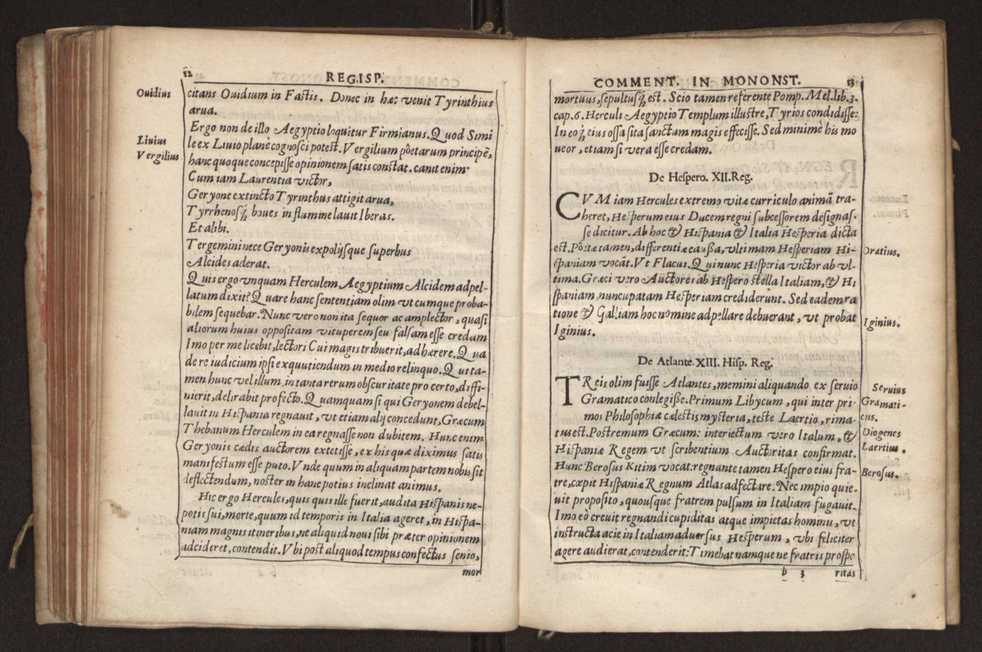 52 REGISP.
Ouidius
Liuius
Vergilius
citans Ouidium in Fastis. Donec in hæc venit Tyrinthius
arua.
Ergo non de illo Aegyptio loquitur Firmianus. Quod Simi
le ex Liuio planè cognosci potest. Vergilium pòetarum principẽ,
hanc quoque concepisse opinionem satis constat. canit enim
Cum iam Laurentia victor,
Geryone extincto Tyrinthus attigit arua,
Tyrrhenoqꝫ boues in flumine lauit Iberas.
Et alibi.
Tergemini nece Geryonis expolijsque superbus
Alcides aderat.
Quis ergo vnquam Herculem Aegyptium Alcidem adpel-
latum dixit? Quare hanc sententiam olim vt cumque proba-
bilem sequebar. Nunc vero non ita sequor ac amplector, quasi
aliorum huius oppositam vituperem seu falsam esse credam
Imo per me licebit, lectori Cui magis tribuerit, adhærere. Qua
de re iudicium ipsi exquutiendum in medio relinquo. Qui ta-
men hunc vel illum, in tanta rerum obscuritate pro certo, diffi-
nierit, delirabit profecto. Quamquam si qui Geryonem debel-
lauit in Hispania regnauit, vt etiam alij concedunt, Græcum
Thebanum Herculem in ea regnasse non dubitem, Hunc enim
Geryonis cædis auctorem extetisse, ex his quæ diximus satis
manifestum esse puto. Vnde quum in aliquam partem nobis sit
deflectendum, noster in hanc potius inclinat animus.
Hic ergo Hercules, quis quis ille fuerit, audita Hispanis ne-
potis sui, morte, quum id temporis in Italia ageret, in Hispa-
niam magnis itineribus, ne aliquid noui sibi præter opinionem
adcideret, contendit. Vbi post aliquod tempus confectus senio,
mor
COMMENT. IN MONONST. 53
mortuus, sepultusqꝫ est. Scio tamen referente Pomp. Mel. lib. 3.
cap. 6. Herculi Aegyptio Templum illustre, Tyrios condidisse:
In eoqꝫ eius ossa sita sanctam magis effecisse. Sed minimè his mo
ueor, etiam si vera esse credam.
De Hespero. XII. Reg.
CVM iam Hercules extremo vitæ curriculo animã tra-
heret, Hesperum eius Ducem regni subcessorem designas-
se dicitur. Ab hoc & Hispania & Italia Hesperia dicta
est. Pòetæ tamen, differentiæ caußa, vltimam Hesperiam Hi-
spaniam vocãt. Vt Flacus. Qui nunc Hesperia victor ab vl-
tima. Græci vero Auctores ab Hespero stella Italiam, & Hi
spaniam, nuncupatam Hesperiam crediderunt. Sed eadem ra
tione & Galliam hoc nomine adpellare debuerant, vt probat
Iginius.
De Atlante. XIII. Hisp. Reg.
TReis olim fuisse Atlantes, memini aliquando ex seruio
Gramatico conlegiße. Primum Libycum, qui inter pri-
mos Philosophiæ cælestis mysteria, teste Laertio, rima-
tus est. Postremum Græcum: interiectum vero Italum, &
Hispaniæ Regem vt scribentium Auctoritas confirmat.
Hunc Berosus Kitim vocat. regnante tamen Hespero eius fra-
tre, cæpit Hispaniæ Regnum Atlas adfectare. Nec impio quie-
uit proposito, quousque fratrem pulsum in Italiam fugauit.
Imo eò creuit regnandi cupiditas atque impietas hominũ, vt
instructa acie in Italiam aduersus Hesperum, vbi feliciter
agere audierat, contenderit: Timebat namque ne fratris prospe
b 3 ritas
Oratius.
Iginius.
Seruius
Gramati-
cus.
Diogenes
Laertius.
Berosus.